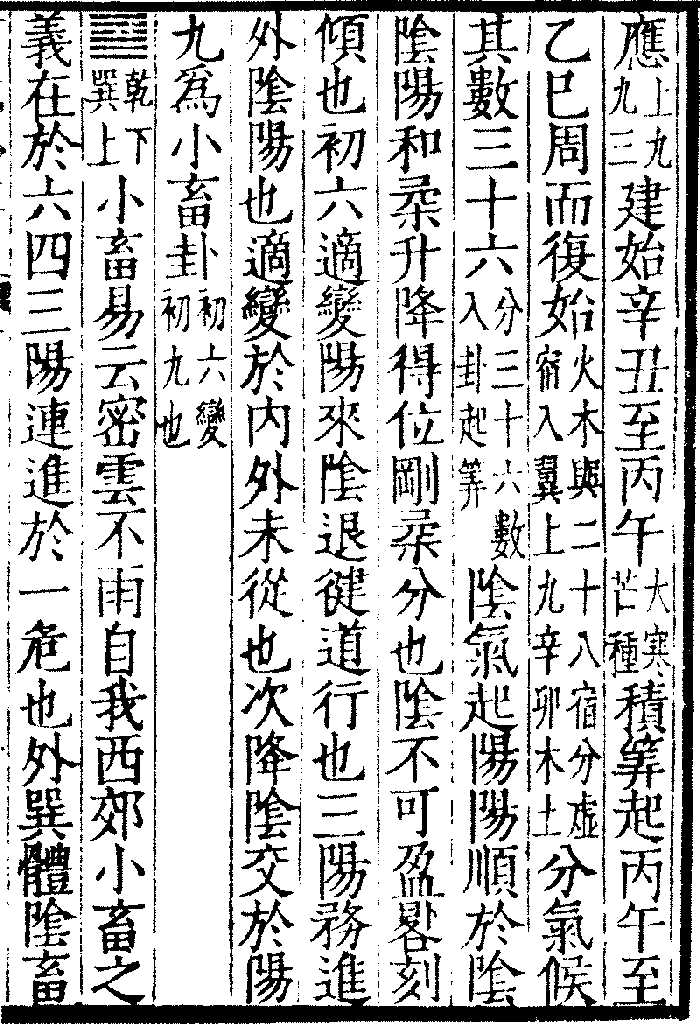 應上九九三建始辛丑至丙午大寒芒種積筭起丙午至
乙巳周而復始火木與二十八宿分虛宿入翼上九辛卯木土分氣候
其數三十六分三十六數入卦起筭陰氣起陽陽順於陰
陰陽和柔升降得位剛柔分也陰不可盈晷刻
傾也初六適變陽來陰退健道行也三陽務進
外陰陽也適變於內外未從也次降陰交於陽
九為小畜卦初六變初九也
䷈乾下巽上小畜易云密雲不雨自我西郊小畜之
義在於六四三陽連進於一危也外巽體陰畜